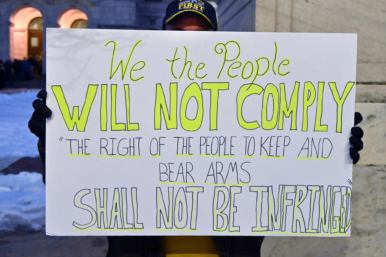 FIRST
We the People
WILL NOT COMPLY
"THE RIGHT OF THE PEOPLE TO KEEP AND
BEAR ARMS
SHALL NOT BE INFRINGED"